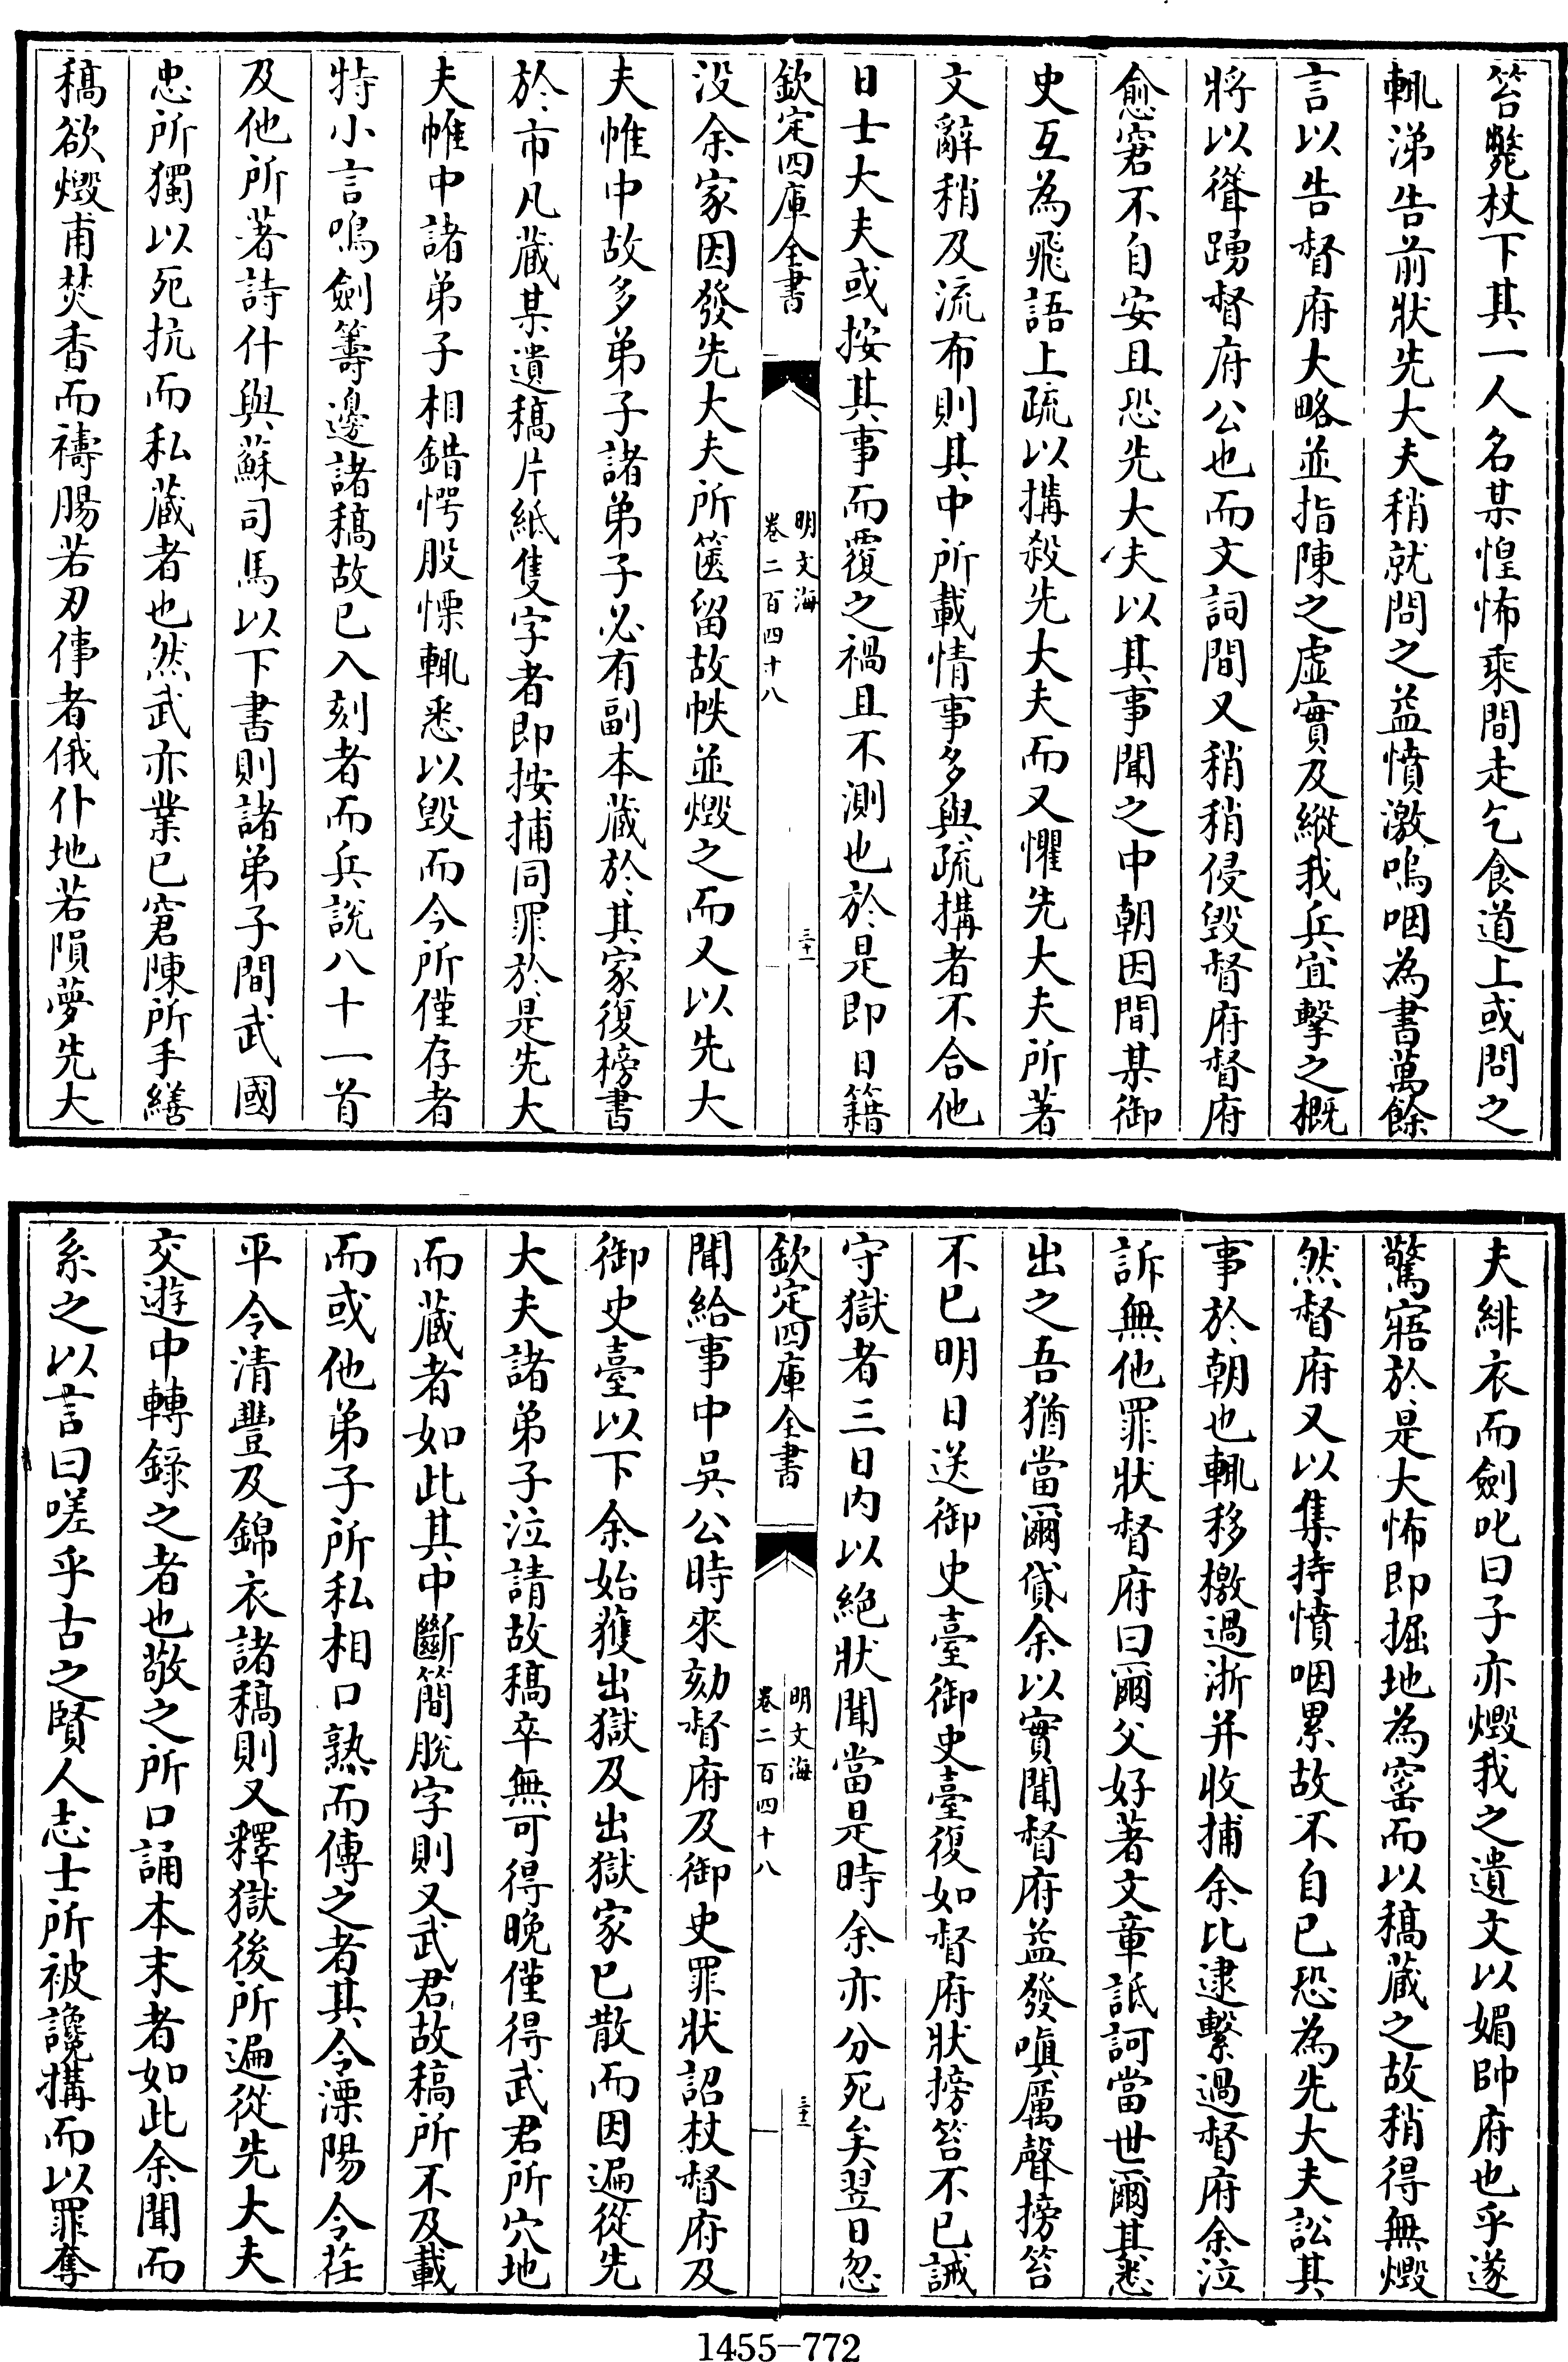 笞斃杖下其一人名某惶怖乘間走乞食道上或問之
輒涕告前狀先大夫稍就問之益憤激嗚咽為書萬餘
言以告督府大略並指陳之虛實及縱我兵宜擊之概
將以聳踴督府公也而文詞間又稍稍侵毀督府督府
愈窘不自安且恐先大夫以其事聞之中朝因間某御
史互為飛語上疏以搆殺先大夫而又懼先大夫所著
文辭稍及流布則其中所載情事多與疏搆者不合他
日士大夫或按其事而覆之禍且不測也於是即日籍
欽定四庫全書
明文海
卷二百四十八
三十一
没余家因發先大夫所篋留故帙並燬之而又以先大
夫帷中故多弟子諸弟子必有副本藏於其家復榜書
於市凡藏某遺稿片紙隻字者即按捕同罪於是先大
夫帷中諸弟子相錯愕股慄輒悉以毀而今所僅存者
特小言鳴劍籌邊諸稿故已入刻者而兵說八十一首
及他所著詩什與蘇司馬以下書則諸弟子間武國
忠所獨以死抗而私藏者也然武亦業已窘陳所手繕
稿欲燬甫焚香而禱腸若刃倳者俄仆地若隕夢先大
夫緋衣而劍叱曰子亦燬我之遺文以媚帥府也乎遂
驚寤於是大怖即掘地為窑而以稿藏之故稍得無燬
然督府又以集持憤咽累故不自已恐為先大夫訟其
事於朝也輒移檄過浙并收捕余比逮繫過督府余泣
訴無他罪狀督府曰爾父好著文章詆訶當世爾其悉
出之吾猶當爾貸余以實聞督府益發嗔厲聲搒笞
不已明日送御史臺御史臺復如督府狀搒笞不已誡
守獄者三日内以絶狀聞當是時余亦分死矣翌日忽
欽定四庫全書
明文海
卷二百四十八
三十二
聞給事中吳公時來劾督府及御史罪狀詔杖督府及
御史臺以下余始獲出獄及出獄家已散而因遍從先
大夫諸弟子泣請故稿卒無可得晚僅得武君所穴地
而藏者如此其中斷簡脫字則又武君故稿所不及載
而或他弟子所私相口熟而傳之者其令溧陽令茌
平令清豐及錦衣諸稿則又釋獄後所遍從先大夫
交遊中轉錄之者也敬之所口誦本末者如此余聞而
系之以言曰嗟乎古之賢人志士所被讒搆而以罪奪
1455-772